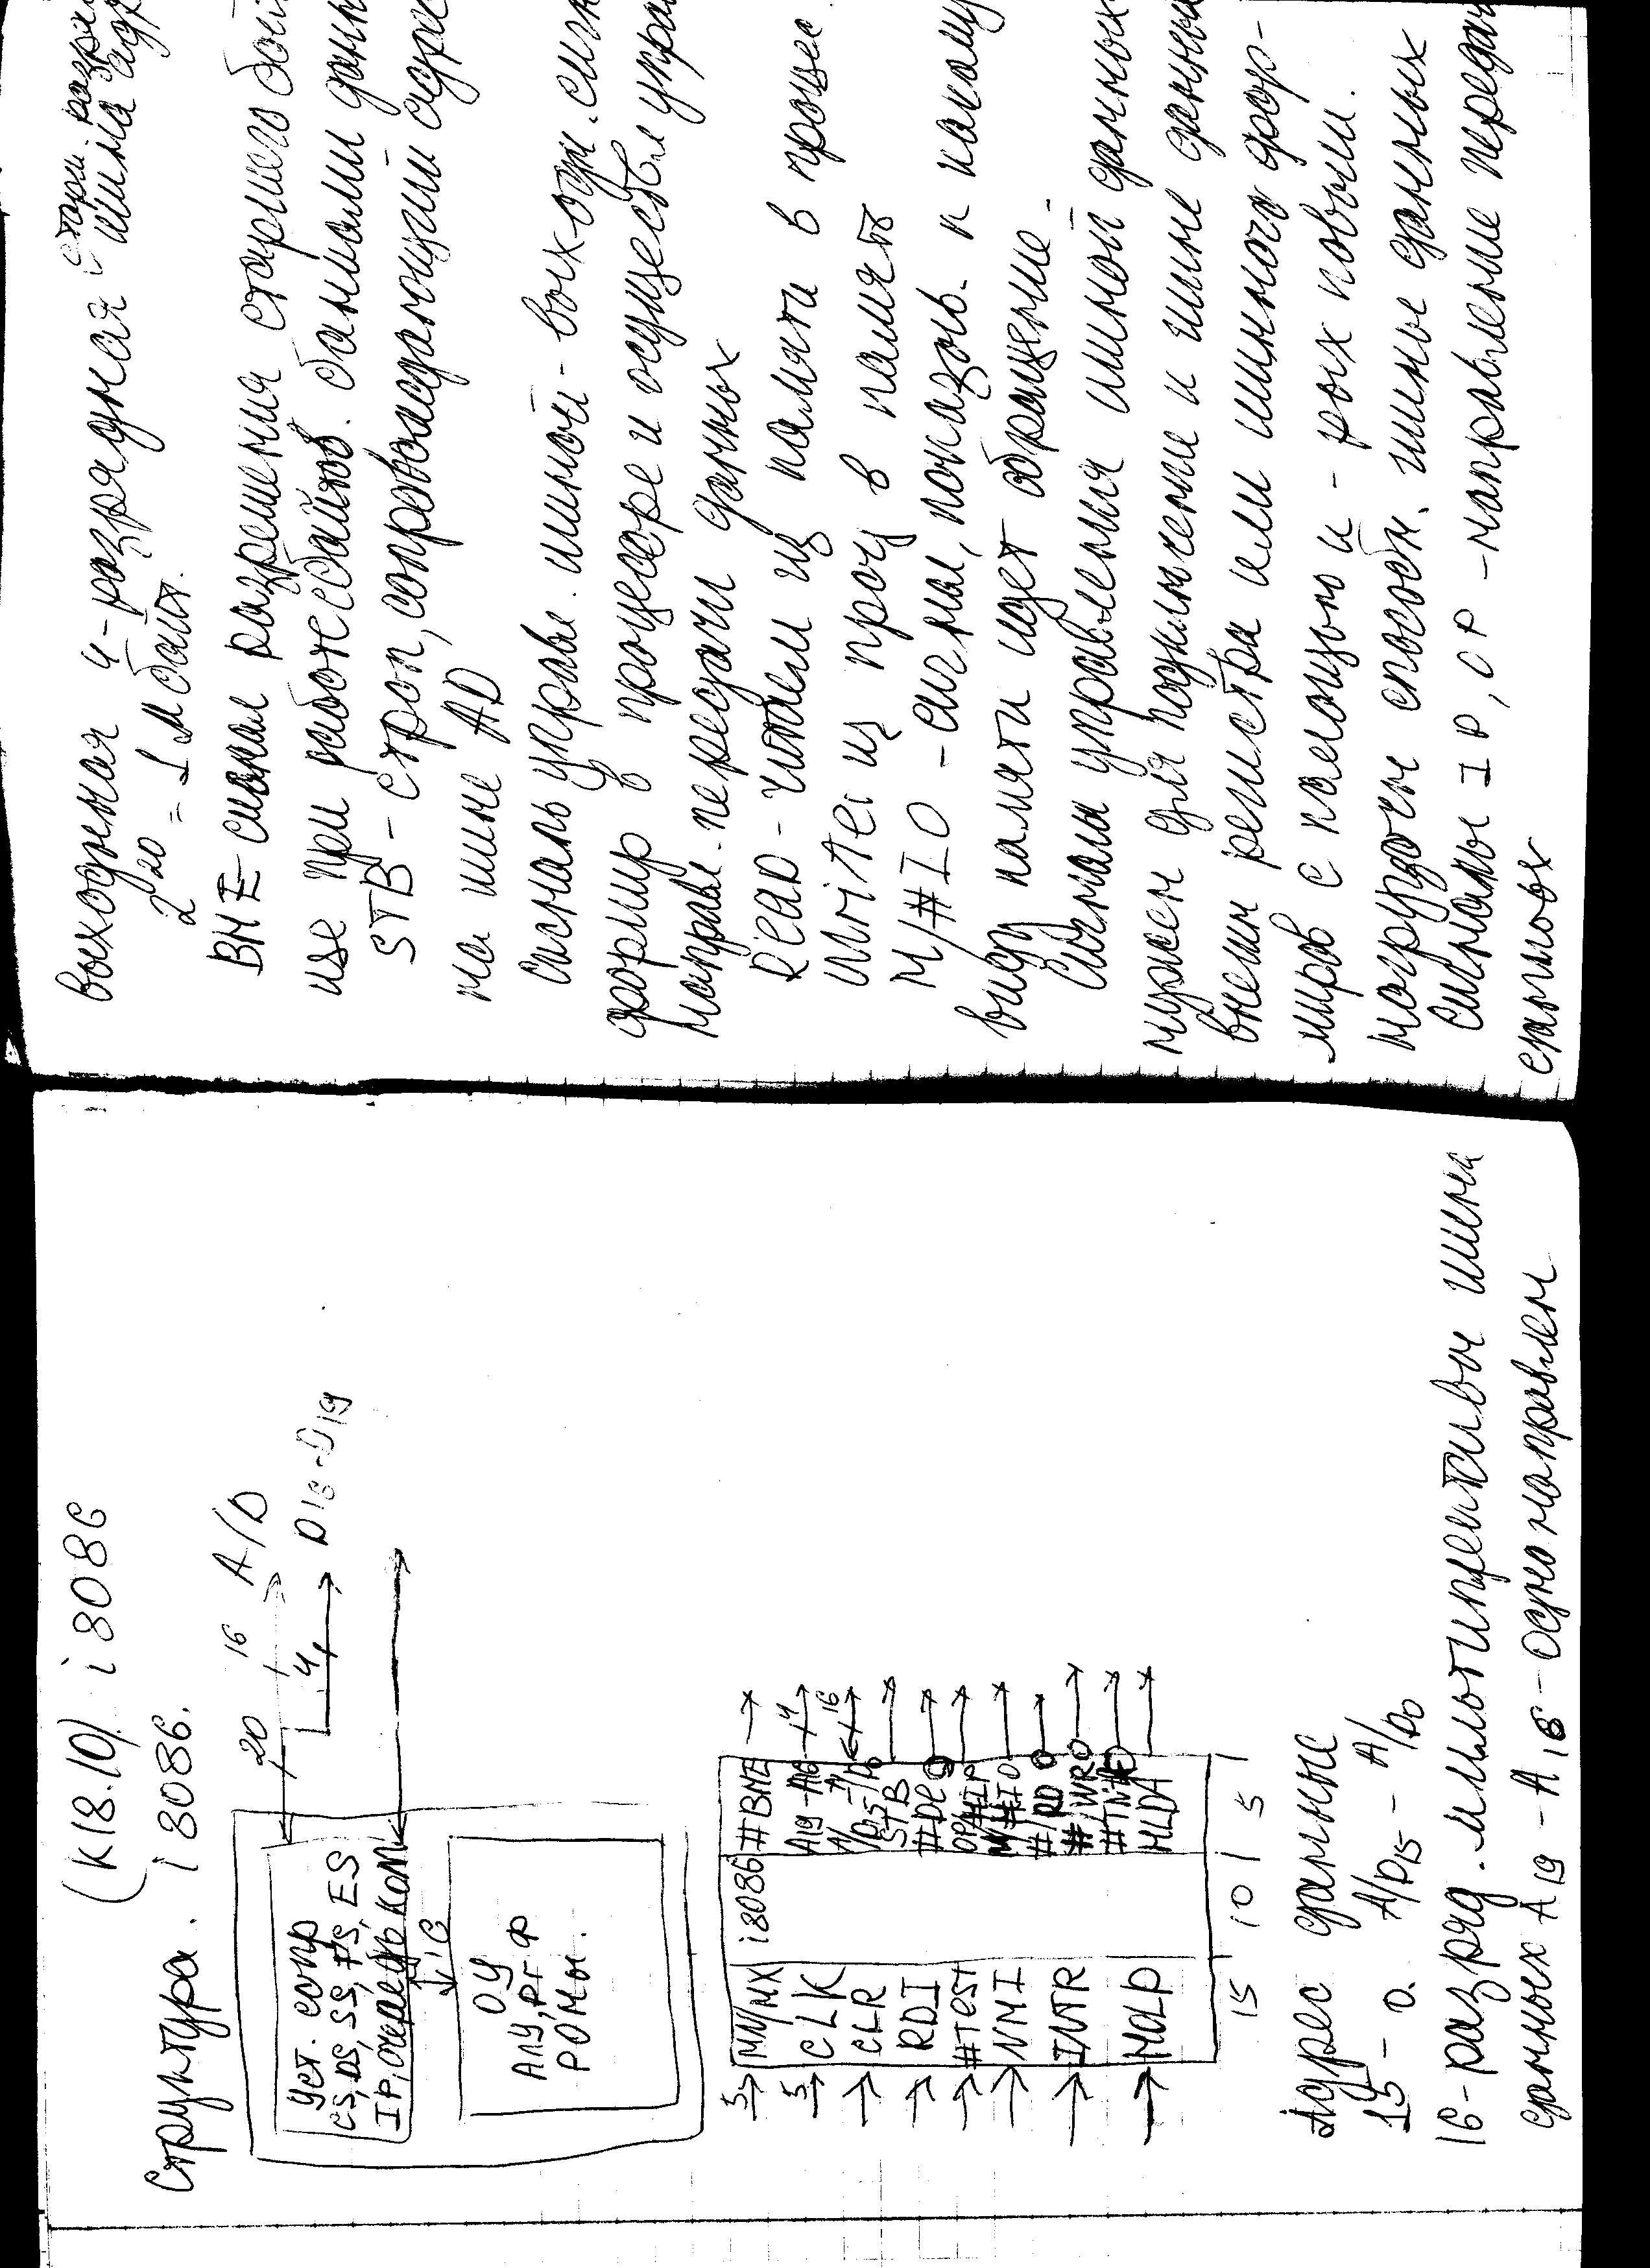 (К18.10) i 8086
Структура. i 8086.
20 16 A/D
4 D18-D19
Уст. сопр
CS, DS, SS, PS, ES
IP, очередь ком
16
ОУ
АЛУ, Рг Ф
РОМы.
5 MN/MX i8086 #BHE
5 CLK A19-A16 4
CLR A/D15-A/D0 16
RDI STB
#TEST #DE
NMI OP/#IP
INTR M/#IO
HOLD #/RD
#/WR
#INTA
HLDA
15 10 5
Адрес данные
15 - 0. A/D15 - A/D0
16-разряд. мультиплексивн шина
данных A19 - A16 - однонаправлен
выходная 4-разрядная старш. разря
шина адр
2²⁰ = 1 М байт.
BHE сигнал разрешения старшего бай
при работе с байтов. банками данн
STB - строп, сопровождающий адре
на шине AD
Сигналы управ. шиной - выходн. сигн
формир в процессоре и осуществл упра
направл. передачи данных
Read - читаем из памяти в процес
Write из проц в память
M/#IO - сигнал, показыв. к какому
виду памяти идет обращение.
Сигналы управления шиной данных
нужен для подключение к шине данных
внешн регистра или шинного фор-
миров с помощью к - рых повыш.
нагрузочн способн. шины данных
сигналы IP, OP - направление передачи
данных